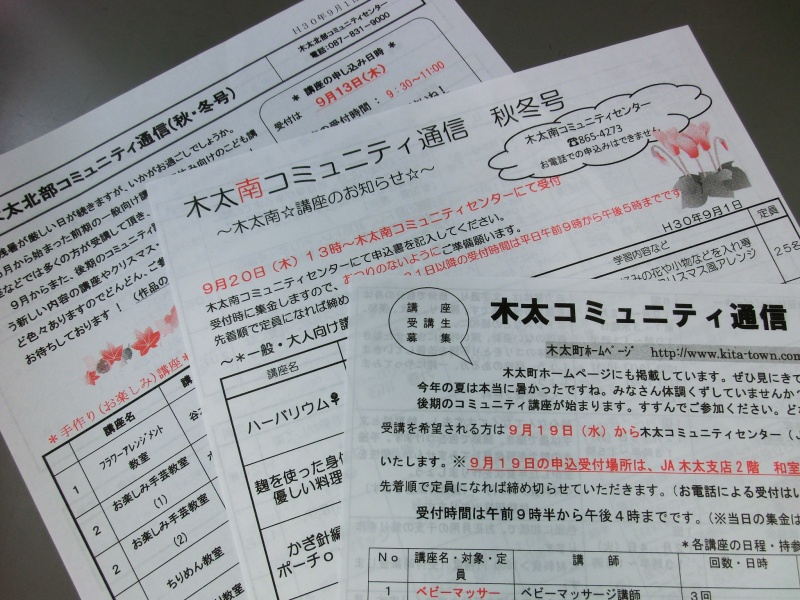 H30年9月1
木太北部コミュニティセンター
電話:087-831-9000
太北部コミュニティ通信(秋・冬号)
* 講座の申し込み日時 *
9月13日(木)
受付は
の受付時間: 9:30~11:00
残暑が厳しい日が続きますが、いかがお過ごしでしょうか。
月から始まった前期の一般向け講
などでは多くの方が受講して頂き、
9月からまた、後期のコミュニティ
う新しい内容の講座やクリスマス・
ど色々ありますのでどんどん、ご参
お待ちしております!(作品の
*手作り(お楽しみ)講座*
講座名
1 フラワーアレンジメント教室
2 お楽しみ手芸教室(1)
2 お楽しみ手芸教室(2)
2 ちりめん教室
木太南コミュニティ通信 秋冬号
~木太南☆講座のお知らせ☆~
木太南コミュニティセンター
☎865-4273
お電話での申込みはできません
H30年9月1日
9月20日(木)13時~木太南コミュニティセンターにて受付
木太南コミュニティセンターにて申込書を記入してください。
受付時に集金しますので、おつりのないようにご準備願います。
先着順で定員になれば締め
21日以降の受付時間は平日午前9時から午後5時までです
~*一般・大人向け講
講座名
学習内容など
定員
好みの花や小物などを入れ専
リスマス風アレンジ
25名
ハーバリウム
麹を使った身体
優しい料理
かぎ針編
ポーチo
講座
受講生
募集
木太コミュニティ通信
木太町ホームページ http://www.kita-town.com
木太町ホームページにも掲載しています。ぜひ見にきて
今年の夏は本当に暑かったですね。みなさん体調くずしていませんか
後期のコミュニティ講座が始まります。すすんでご参加ください。ど
受講を希望される方は9月19日(水)から木太コミュニティセンター(
いたします。※9月19日の申込受付場所は、JA木太支店2階 和室
先着順で定員になれば締め切らせていただきます。(お電話による受付はい
受付時間は午前9時半から午後4時までです。(※当日の集金は
*各講座の日程・持参
No 講座名・対象・定員 講師 回数・日時
1 ベビーマッサー ベビーマッサージ講師 3回